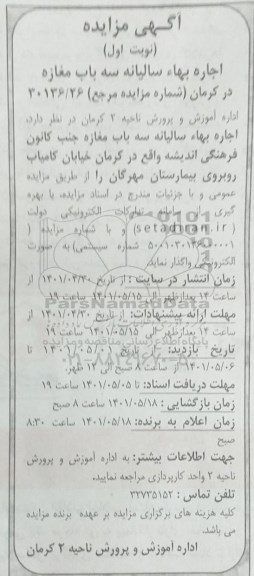 آگهی مزایده
(نوبت اول)
اجاره بهاء سالیانه سه باب مغازه
در کرمان (شماره مزایده مرجع) ۳۰۱۳۶/۲۶
اداره آموزش و پرورش ناحیه ۲ کرمان در نظر دارد،
اجاره بهاء سالیانه سه باب مغازه جنب کانون
فرهنگی اندیشه واقع در کرمان خیابان کامیاب
روبروی بیمارستان مهرگان را از طریق مزایده
عمومی و با جزئیات مندرج در اسناد مزایده، با بهره
گیری از سامانه تدارکات الکترونیکی دولت
(setadiran.ir) و با شماره مزایده (
شماره سیستمی) به صورت
الکترونیکی واگذار نماید.
زمان انتشار در سایت: از تاریخ ۱۴۰۱/۰۴/۳۰ از
ساعت ۱۴ بعدازظهر الی ۱۴۰۱/۰۵/۱۵ ساعت ۱۹
مهلت ارائه پیشنهادات: از تاریخ ۱۴۰۱/۰۴/۳۰ از
ساعت ۱۴ بعدازظهر الی ۱۴۰۱/۰۵/۱۵ ساعت ۱۹
تاریخ بازدید: از تاریخ تا
از ساعت ۸ صبح الی ۱۲ ظهر.
مهلت دریافت اسناد: تا ۱۴۰۱/۰۵/۰۵ ساعت ۱۹
زمان بازگشایی: ۱۴۰۱/۰۵/۱۸ ساعت ۸ صبح
زمان اعلام به برنده: ۱۴۰۱/۰۵/۱۸ ساعت ۸:۳۰
صبح
جهت اطلاعات بیشتر: به اداره آموزش و پرورش
ناحیه ۲ واحد کارپردازی مراجعه نمایید.
تلفن تماس: ۳۲۷۳۵۱۵۲
کلیه هزینه های برگزاری مزایده بر عهده برنده مزایده
می باشد.
اداره آموزش و پرورش ناحیه ۲ کرمان